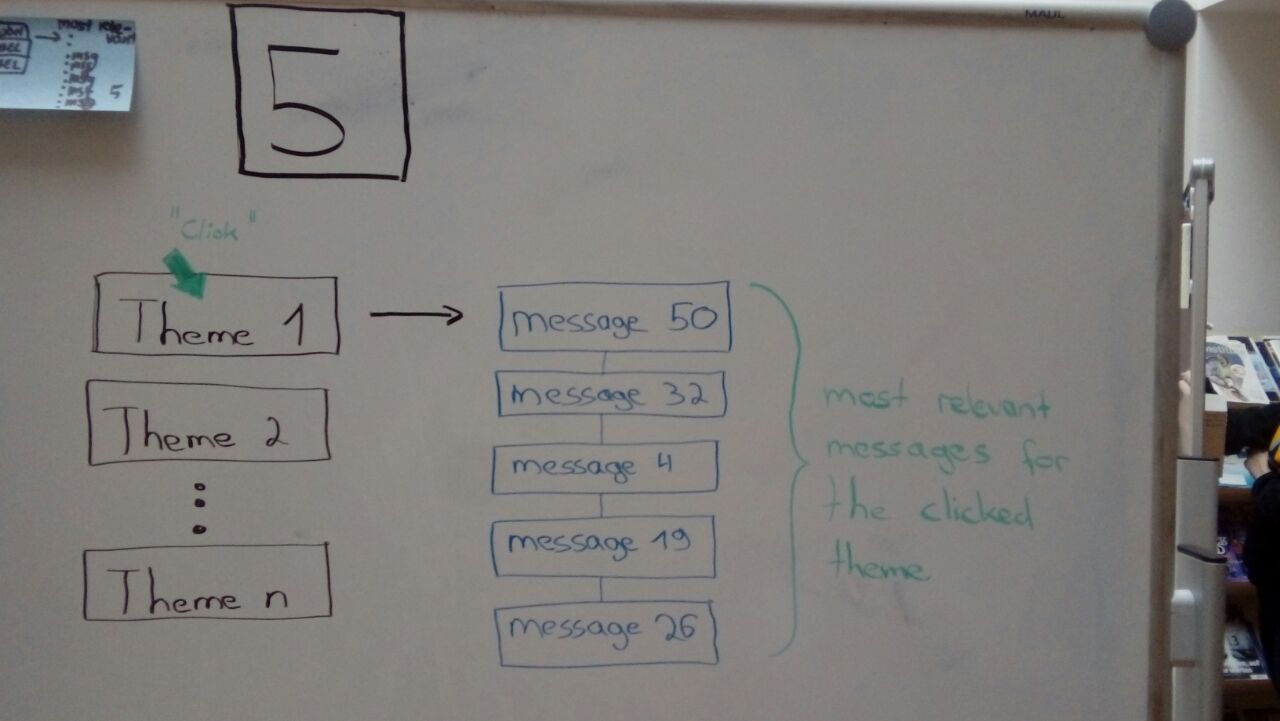 most rele-
vant
5
MAUL
5
"Click"
Theme 1
Theme 2
Theme n
message 50
message 32
message 4
message 19
message 26
most relevant
messages for
the clicked
theme